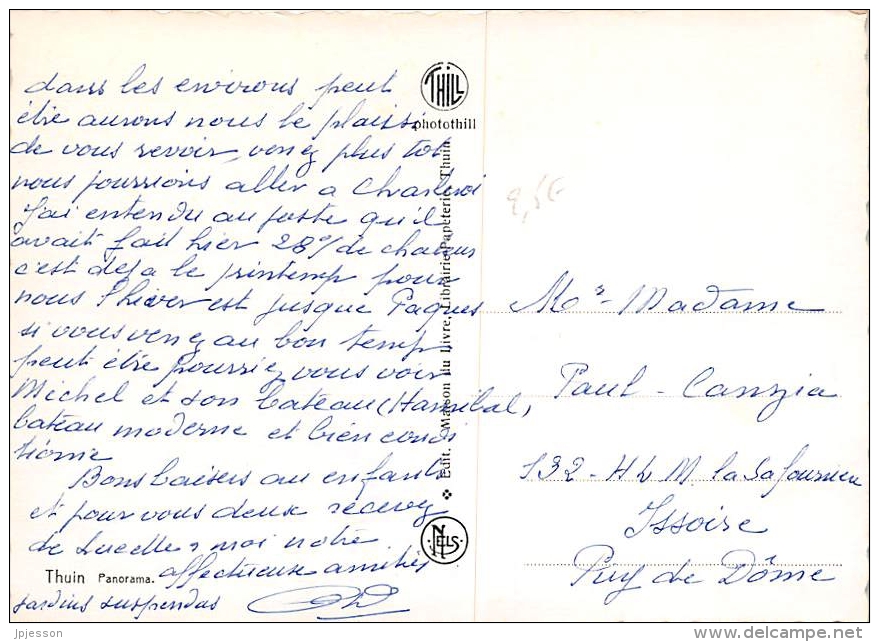 dans les environs peut
être aurons nous le plaisir
de vous revoir, venez plus tot
nous pourrions aller a Charleroi
J'ai entendu au poste qu'il
avait fait hier 28° de chaleur
c'est deja le printemp pour
nous l'hiver est jusque Paques
si vous venez au bon temp
peut être pourriez vous voir
Michel et son bateau (Hannibal,
bateau moderne et bien condi
tionné
Bons baisers au enfants
et pour vous deux recevez
de Lucette & moi notre
affectueuse amitiés
Thuin Panorama.
jardins suspendus
THILL
photothill
Edit. Maison du Livre, Librairie-Papeterie, Thuin.
NELS
Mr - Madame
Paul - Canzia
132 - HLM. la
Issoire
Puy de Dôme
jpjesson
www.delcampe.net